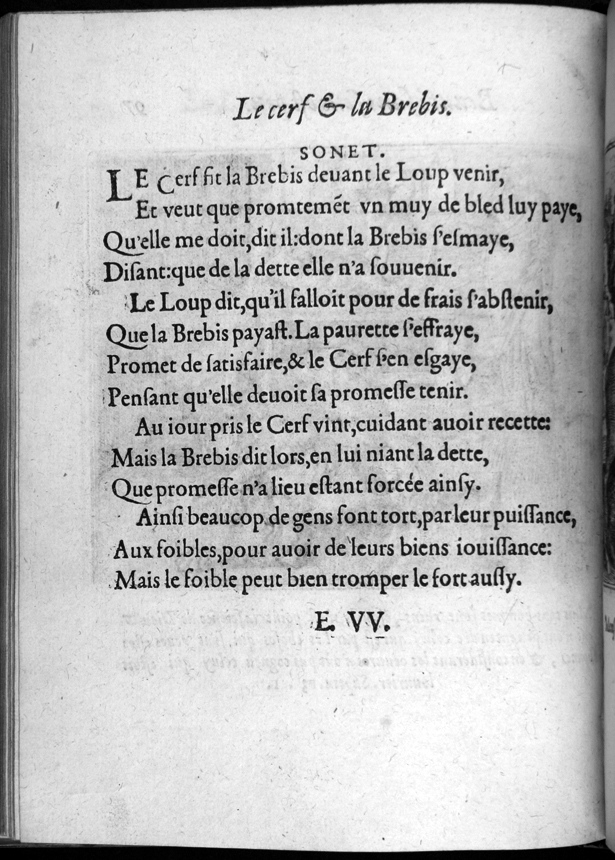 Le cerf & la Brebis.
SONET.
LE Cerf fit la Brebis deuant le Loup venir,
Et veut que promtemẽt vn muy de bled luy paye,
Qu'elle me doit,dit il:dont la Brebis ſ'eſmaye,
Diſant:que de la dette elle n'a ſouuenir.
Le Loup dit,qu'il falloit pour de frais ſ'abſtenir,
Que la Brebis payaſt. La paurette ſ'effraye,
Promet de ſatisfaire,& le Cerf ſ'en eſgaye,
Penſant qu'elle deuoit ſa promeſſe tenir.
Au iour pris le Cerf vint,cuidant auoir recette:
Mais la Brebis dit lors,en lui niant la dette,
Que promeſſe n'a lieu eſtant forcée ainſy.
Ainſi beaucop de gens font tort,par leur puiſſance,
Aux foibles,pour auoir de leurs biens iouiſſance:
Mais le foible peut bien tromper le fort auſſy.
E. VV.